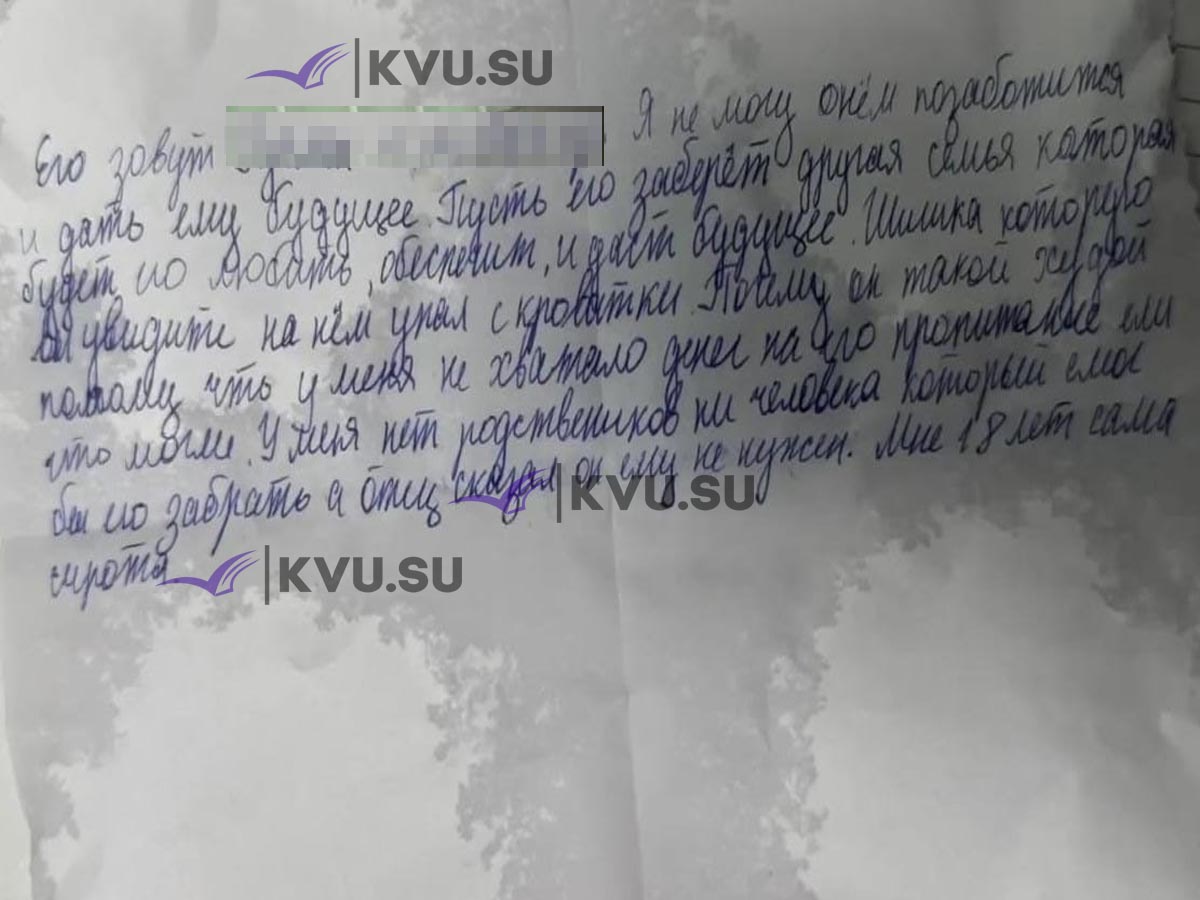 KVU.SU
Его зовут Я не могу онём позаботится
и дать ему будущее. Пусть его заберёт другая семья каторая
будет его любить, обеспечит, и даст будущее. Шишка которую
вы увидите на нём упал с кроватки. Почему он такой худой
потому что у меня не хватало денег на его пропитание ели
что могли. У меня нет родствеников ни человека который смог
бы его забрать а отец сказал он ему не нужен. Мне 18 лет сама
KVU.SU
сирота
KVU.SU